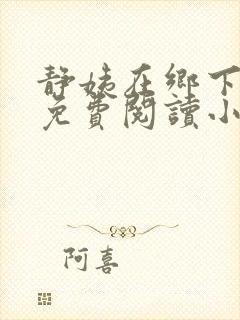 静姨在鄉下
免費閱讀小
阿喜